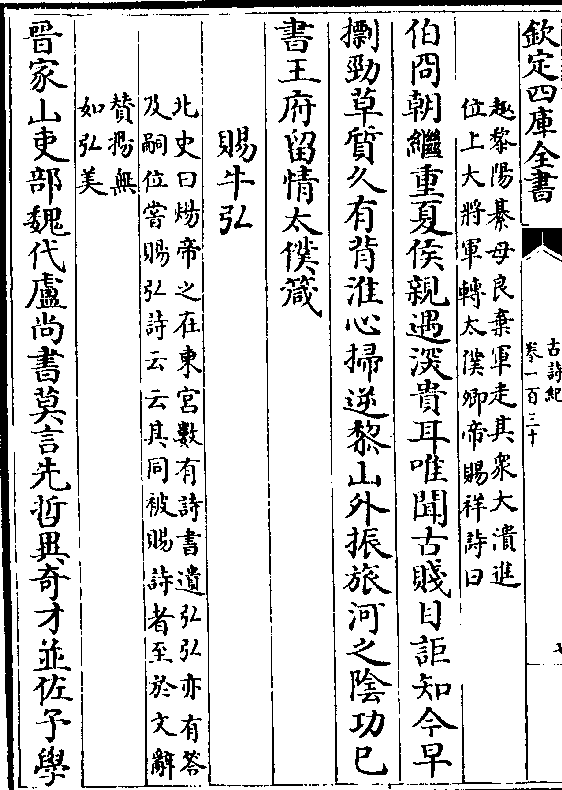 欽定四庫全書
古詩紀
卷一百三十
七
趣黎陽綦母良棄軍走其衆大潰進
位上大將軍轉太僕卿帝賜祥詩曰
伯冏朝繼重夏侯親遇深貴耳唯聞古賤目詎知今早
摽勁草質久有背淮心掃逆黎山外振旅河之陰功已
書王府留情太僕箴
賜牛弘
北史曰煬帝之在東宮數有詩書遺弘弘亦有答
及嗣位嘗賜弘詩云云其同被賜詩者至於文辭
贊揚無
如弘美
晉家山吏部魏代盧尚書莫言先哲異奇才並佐予學